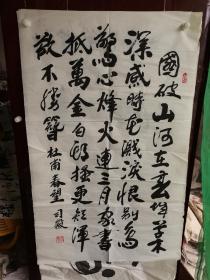 國破山河在春城草木
深感時花濺淚恨別鳥
驚心烽火連三月家書
抵萬金白頭搔更短渾
欲不勝簪 杜甫春望